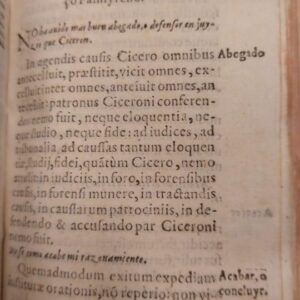 No ha auido mas buen abogado, o defensor en juy-
zio que Ciceron.
In agendis causis Cicero omnibus
Abegado
antecelluit, præstitit, vicit omnes, ex-
suit inter omnes, anteiuit omnes, an-
tecelluit: patronus Ciceroni conferen-
dus nemo fuit, neque eloquentia, ne-
que studio, neque fide: ad iudices, ad
tribunalia ad caussas tantum eloquen
tiæ, studij, fidei, quātùm Cicero, nemo
attulit in iudicijs, in foro, in forensibus
causis, in forensi munere, in tractandis
causis, in causarum patrocinijs, in de-
fendendo & accusando par Ciceroni
nemo fuit.
No se como acabe mi razonamiento.
Quemadmodum exitum expediam
Acabar, o
concluyr.
institutæ orationis, nō reperio: non vi-